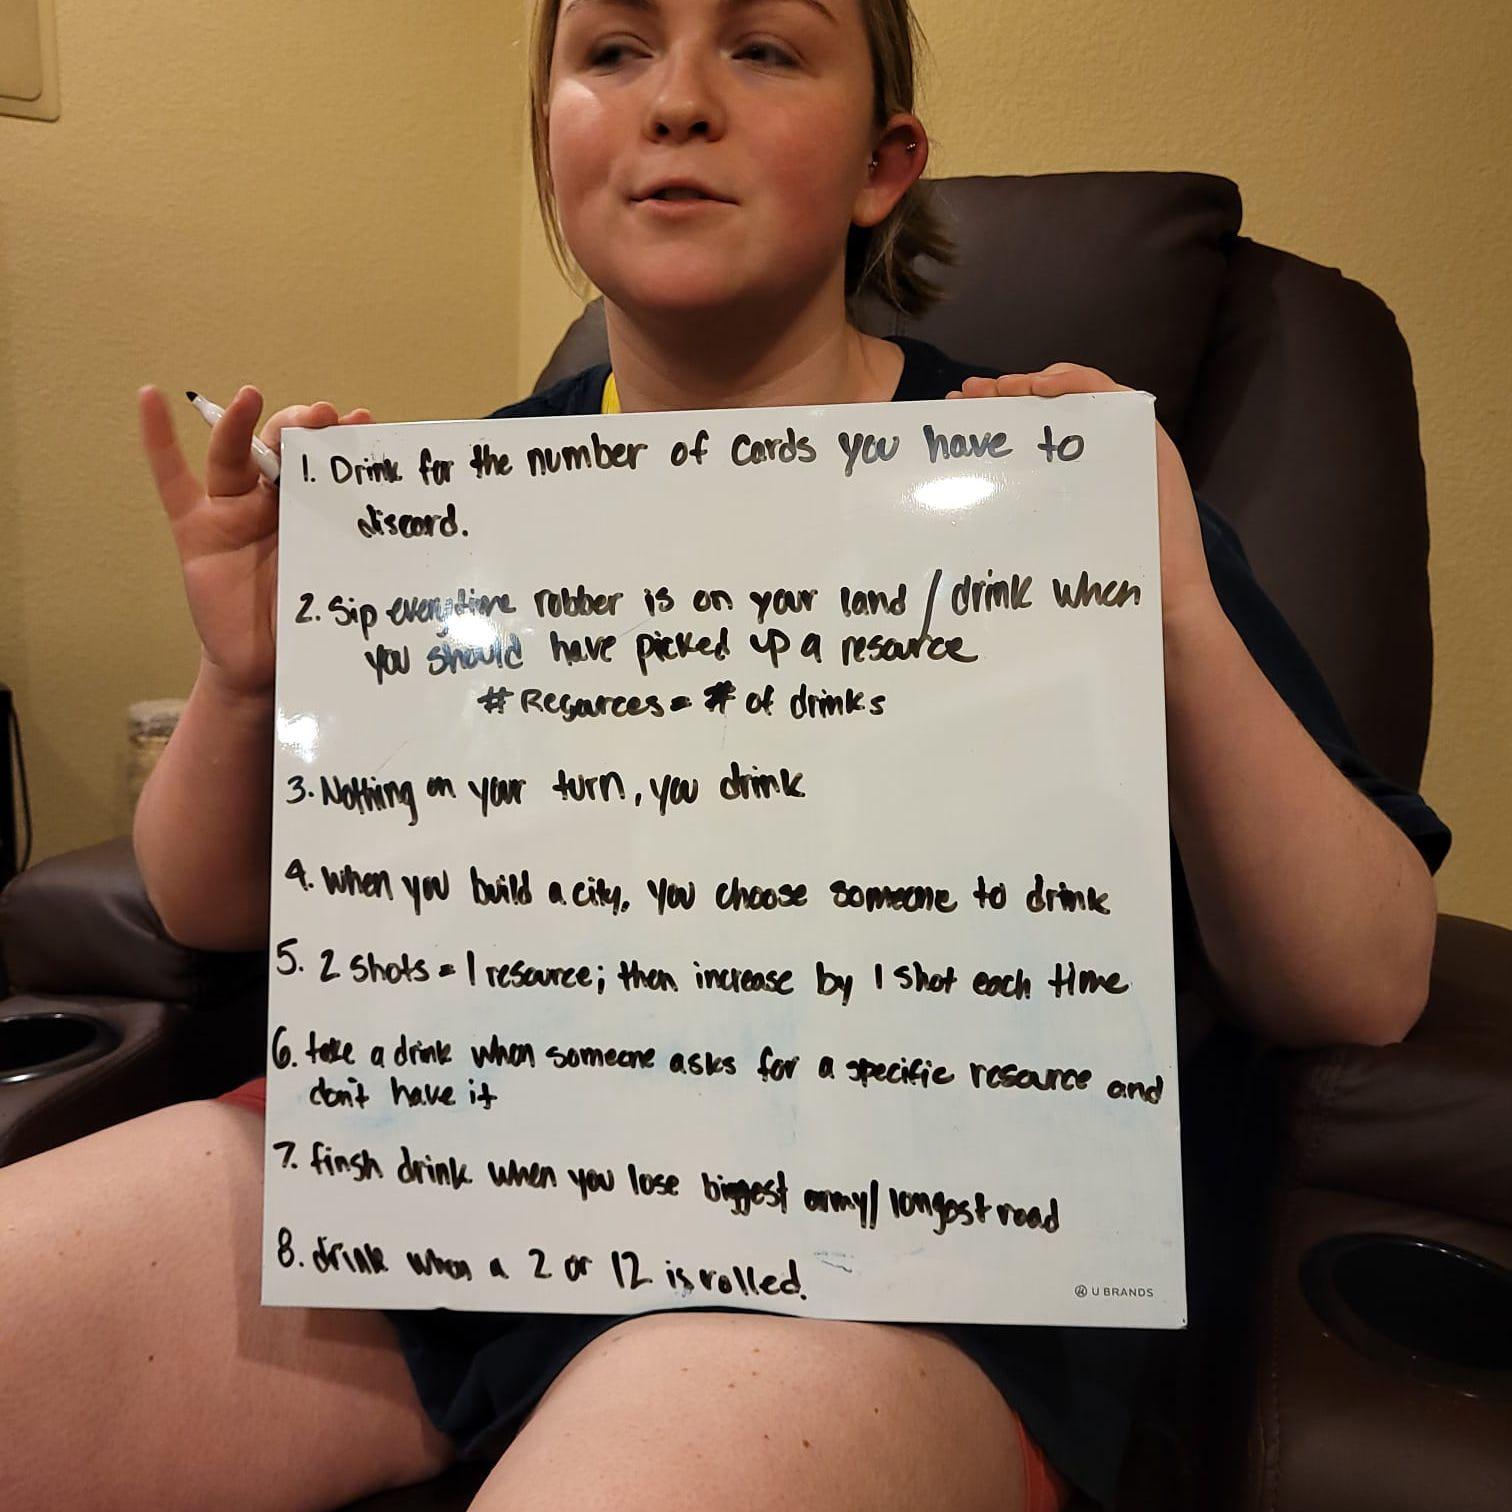 1. Drink for the number of cards you have to
discard.
2. Sip everytime robber is on your land / drink when
you should have picked up a resource
# Resources = # of drinks
3. Nothing on your turn, you drink
4. When you build a city, you choose someone to drink
5. 2 shots = 1 resource; then increase by 1 shot each time
6. take a drink when someone asks for a specific resource and
don't have it
7. finsh drink when you lose biggest army/longest road
8. drink when a 2 or 12 is rolled.
U BRANDS